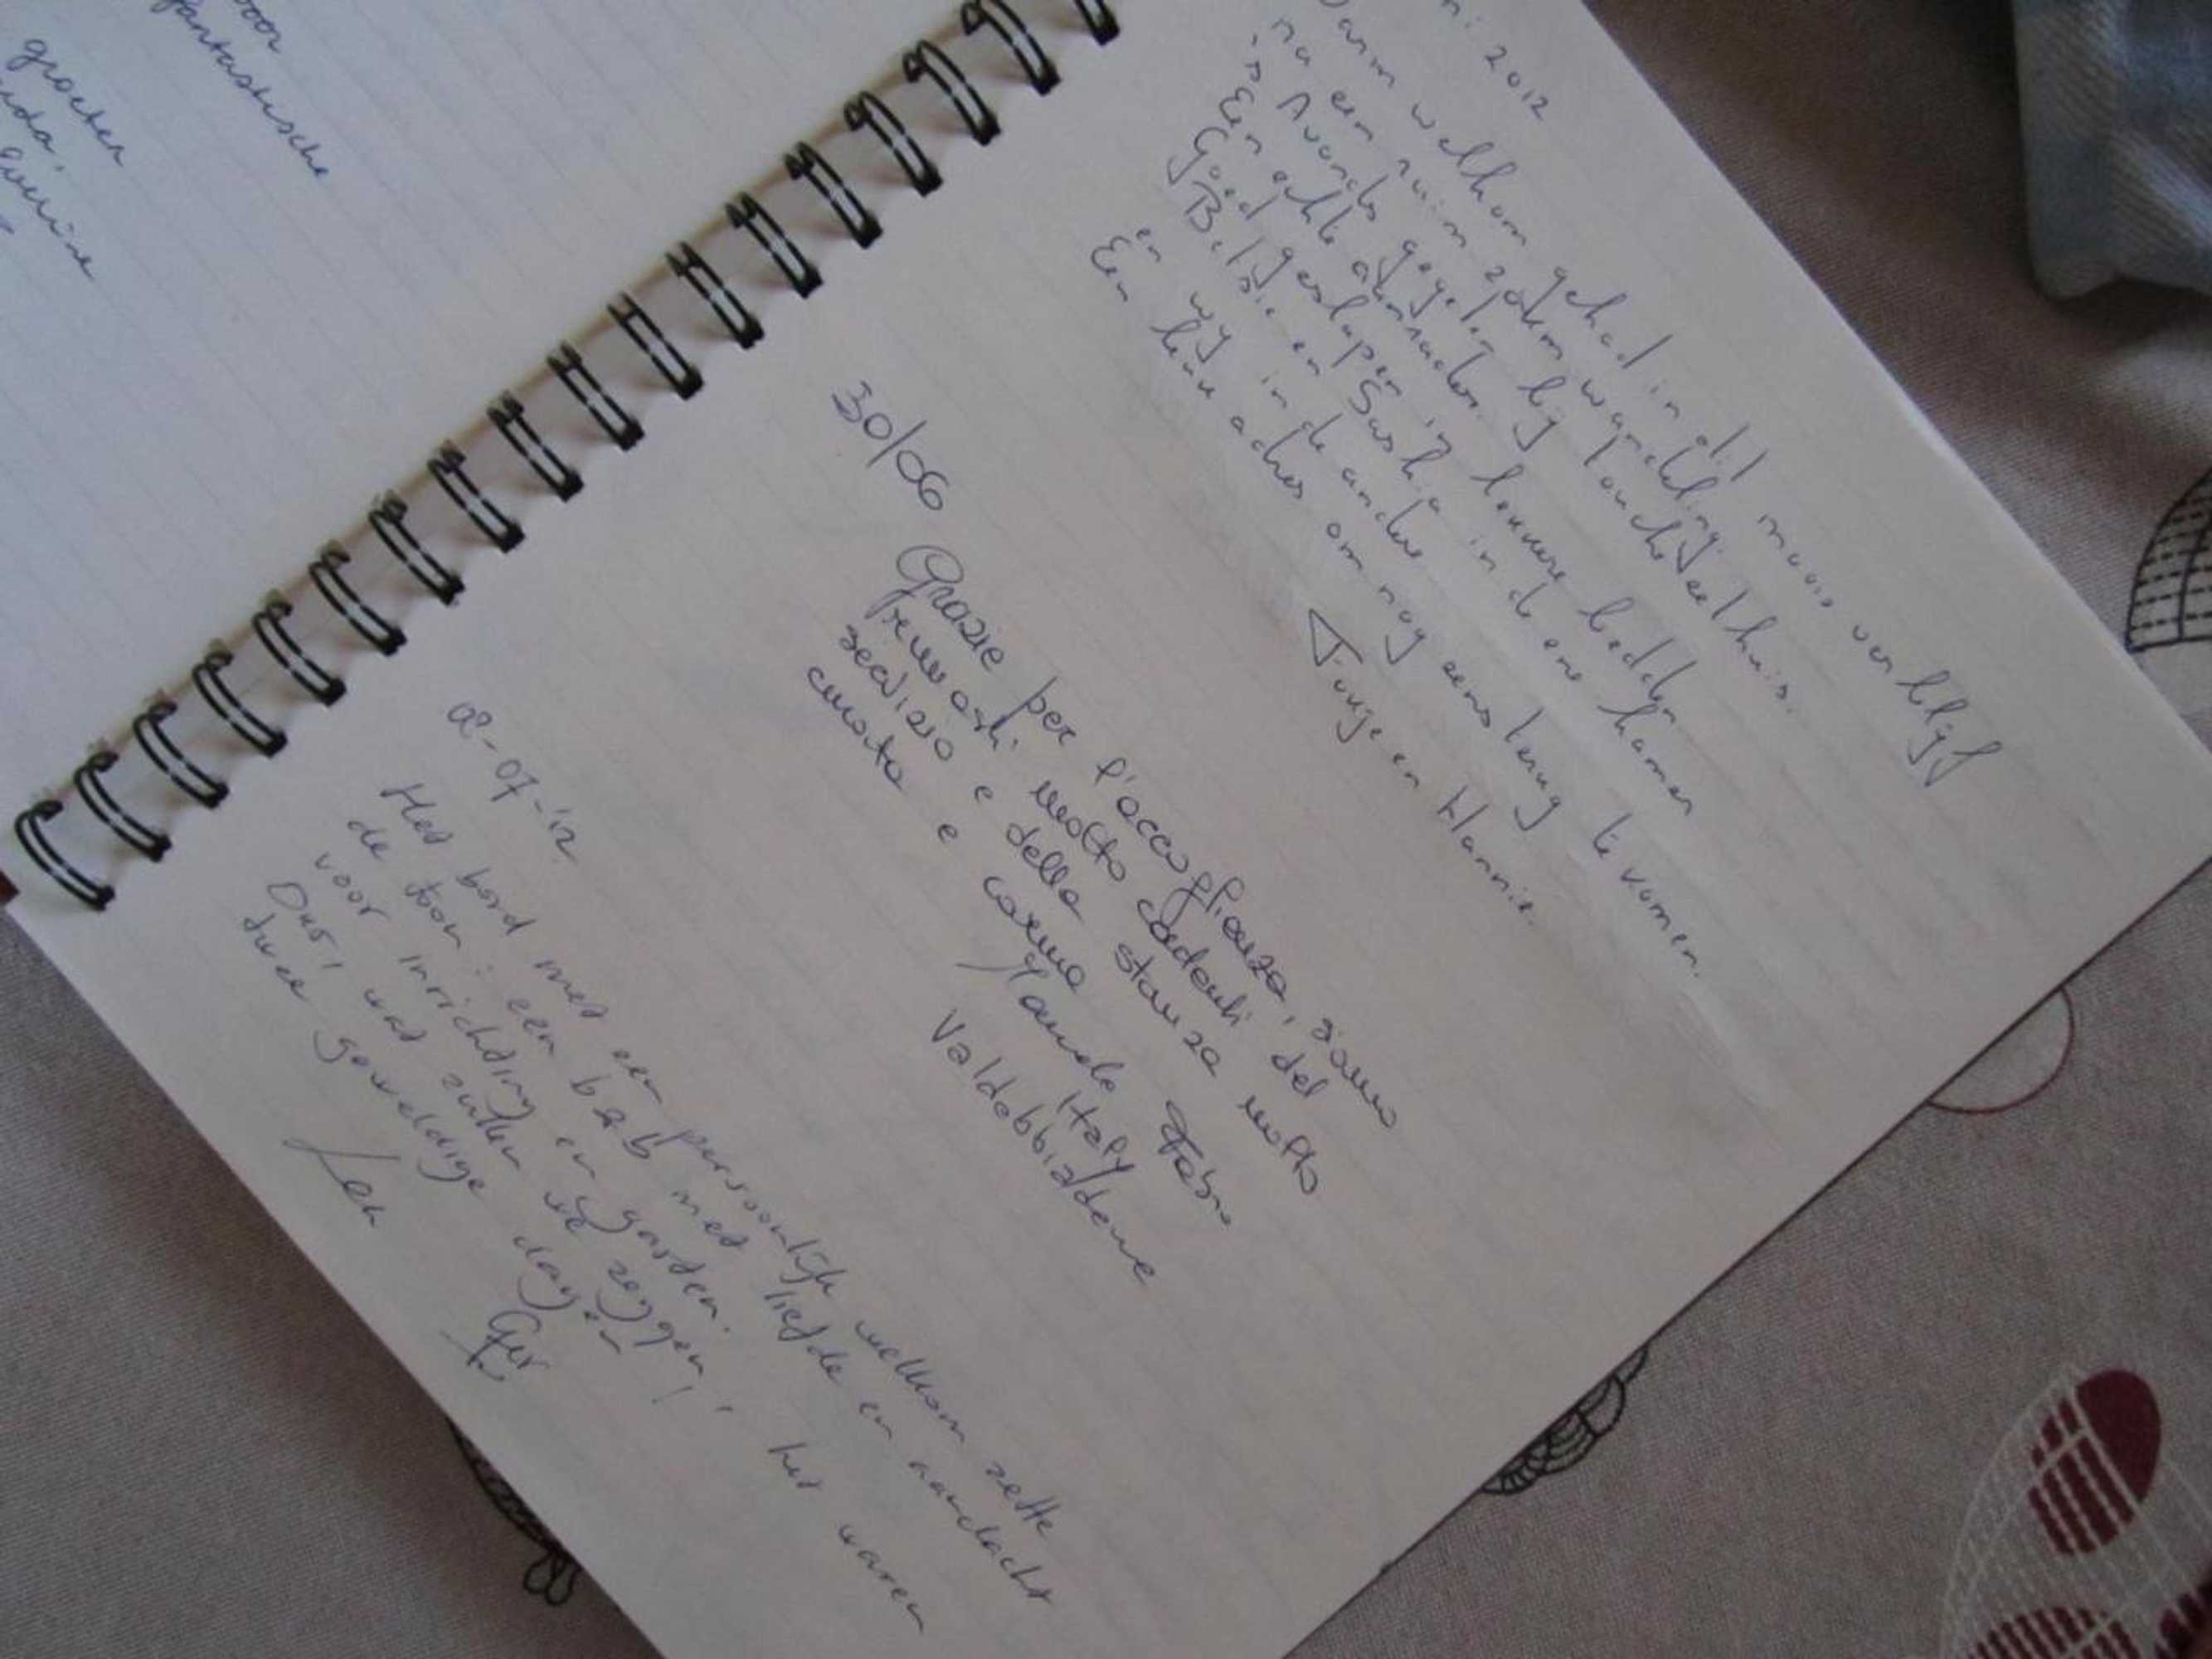 voor
fantastische
groeten
ni 2012
Warm welkom gehad in dit mooie verblijf
na een ruim zotem wandeling.
's Avonds gegeten bij Touche eethuis.
Een echte aanrader.
Goed geslapen in lekkere bedden
Belsie en Saskia in de ene kamer
en wij in de andere
Een leuk adres om nog eens terug te komen.
Tonje en Hannie.
30/06
Grazie per l'accoglienza, siamo
rimasti molto contenti del
servizio e della stanza molto
curata e carina
Manola Fabio
Italy
Valdobbiadene
02-07-'12
Het bord met een persoonlijk welkom zette
de toon: een b&b met liefde en aandacht
voor inrichting en gasten.
Dus, wat zullen we zeggen, het waren
twee geweldige dagen!
Lea Ger